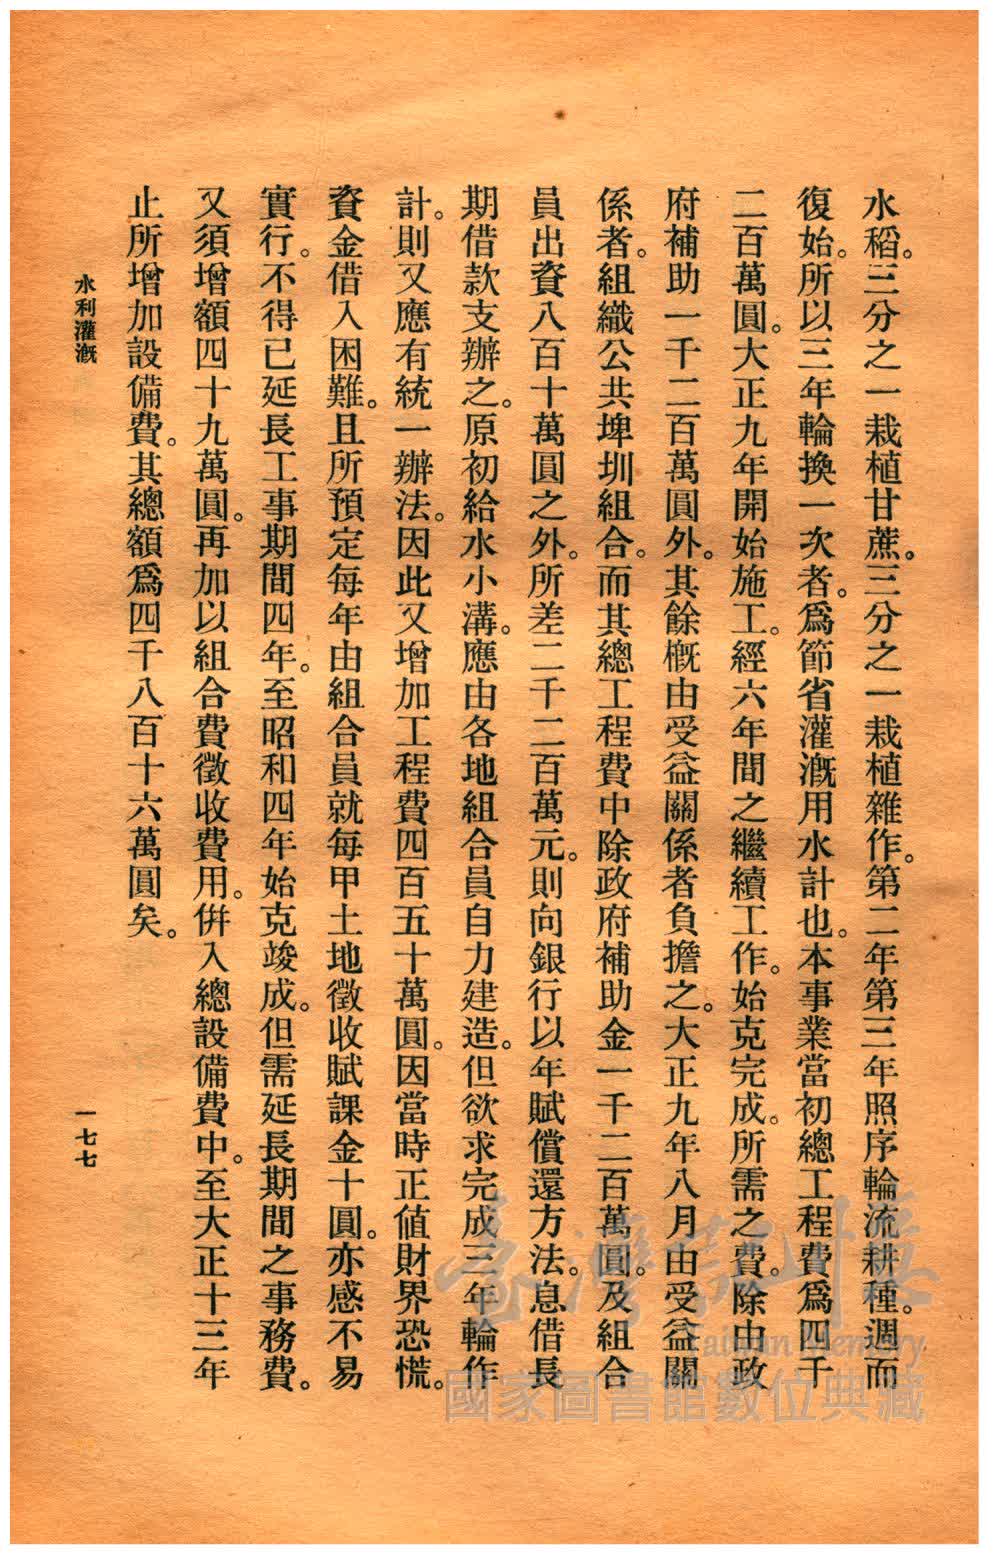 水稻。三分之一栽植甘蔗。三分之一栽植雜作。第二年第三年照序輪流耕種。週而
復始。所以三年輪換一次者。爲節省灌漑用水計也。本事業當初總工程費爲四千
二百萬圓。大正九年開始施工。經六年間之繼續工作。始克完成。所需之費。除由政
府補助一千二百萬圓外。其餘槪由受益關係者負擔之。大正九年八月由受益關
係者。組織公共埤圳組合。而其總工程費中除政府補助金一千二百萬圓。及組合
員出資八百十萬圓之外。所差二千二百萬元。則向銀行以年賦償還方法。息借長
期借款支辦之。原初給水小溝。應由各地組合員自力建造。但欲求完成三年輪作
計。則又應有統一辦法。因此又增加工程費四百五十萬圓。因當時正値財界恐慌。
資金借入困難。且所預定每年由組合員就每甲土地徵收賦課金十圓。亦感不易
實行。不得已延長工事期間四年。至昭和四年始克竣成。但需延長期間之事務費。
又須增額四十九萬圓。再加以組合費徵收費用。倂入總設備費中。至大正十三年
止所增加設備費。其總額爲四千八百十六萬圓矣。
水利灌漑
一七七
臺灣記憶
Taiwan Memory
國家圖書館數位典藏